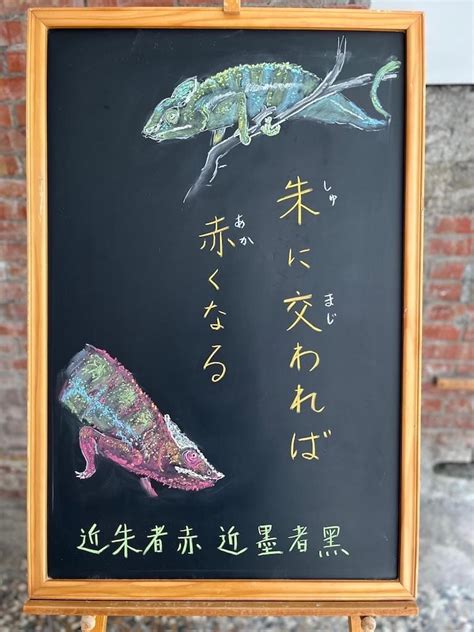 朱に交われば
しゅ
まじ
赤くなる
あか
近朱者赤 近墨者黑